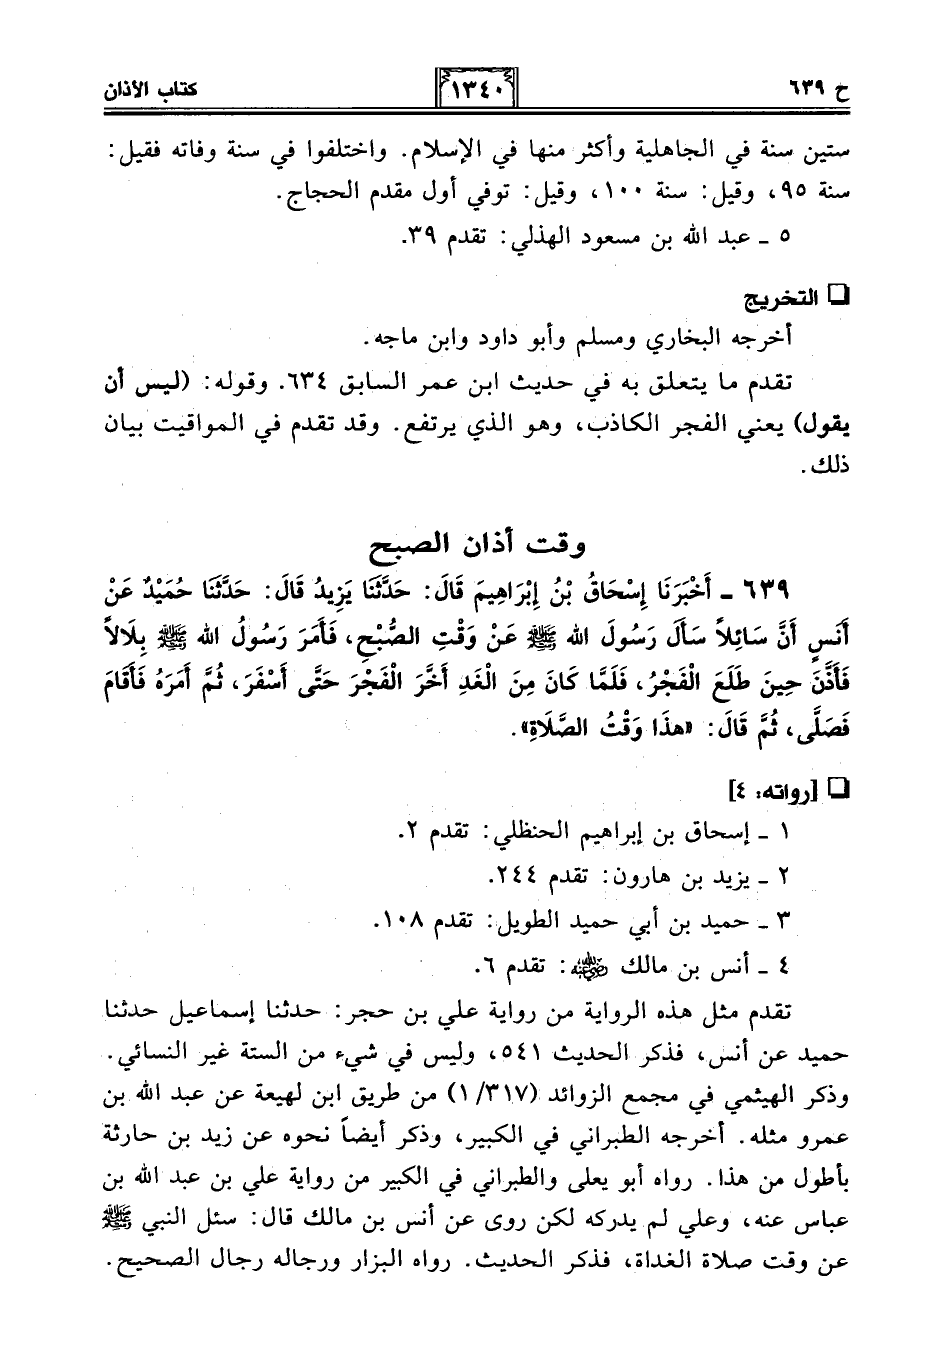 ح ٦٣٩ ١٣٤٠ كتاب الأذان
ستين سنة في الجاهلية وأكثر منها في الإسلام. واختلفوا في سنة وفاته فقيل:
سنة ٩٥، وقيل: سنة ١٠٠، وقيل: توفي أول مقدم الحجاج.
٥ ـ عبد الله بن مسعود الهذلي: تقدم ٣٩.
❑ التخريج
أخرجه البخاري ومسلم وأبو داود وابن ماجه.
تقدم ما يتعلق به في حديث ابن عمر السابق ٦٣٤. وقوله: (ليس أن
يقول) يعني الفجر الكاذب، وهو الذي يرتفع. وقد تقدم في المواقيت بيان
ذلك.
وقت أذان الصبح
٦٣٩ ـ أَخْبَرَنَا إِسْحَاقُ بْنُ إِبْرَاهِيمَ قَالَ: حَدَّثَنَا يَزِيدُ قَالَ: حَدَّثَنَا حُمَيْدٌ عَنْ
أَنَسٍ أَنَّ سَائِلاً سَأَلَ رَسُولَ الله ﷺ عَنْ وَقْتِ الصُّبْحِ، فَأَمَرَ رَسُولُ الله ﷺ بِلَالاً
فَأَذَّنَ حِينَ طَلَعَ الْفَجْرُ، فَلَمَّا كَانَ مِنَ الْغَدِ أَخَّرَ الْفَجْرَ حَتَّى أَسْفَرَ، ثُمَّ أَمَرَهُ فَأَقَامَ
فَصَلَّى، ثُمَّ قَالَ: «هذَا وَقْتُ الصَّلَاةِ».
❑ [رواته: ٤]
١ ـ إسحاق بن إبراهيم الحنظلي: تقدم ٢.
٢ ـ يزيد بن هارون: تقدم ٢٤٤.
٣ ـ حميد بن أبي حميد الطويل: تقدم ١٠٨.
٤ ـ أنس بن مالك رضي الله عنه: تقدم ٦.
تقدم مثل هذه الرواية من رواية علي بن حجر: حدثنا إسماعيل حدثنا
حميد عن أنس، فذكر الحديث ٥٤١، وليس في شيء من الستة غير النسائي.
وذكر الهيثمي في مجمع الزوائد (١/٣١٧) من طريق ابن لهيعة عن عبد الله بن
عمرو مثله. أخرجه الطبراني في الكبير، وذكر أيضاً نحوه عن زيد بن حارثة
بأطول من هذا. رواه أبو يعلى والطبراني في الكبير من رواية علي بن عبد الله بن
عباس عنه، وعلي لم يدركه لكن روى عن أنس بن مالك قال: سئل النبي ﷺ
عن وقت صلاة الغداة، فذكر الحديث. رواه البزار ورجاله رجال الصحيح.